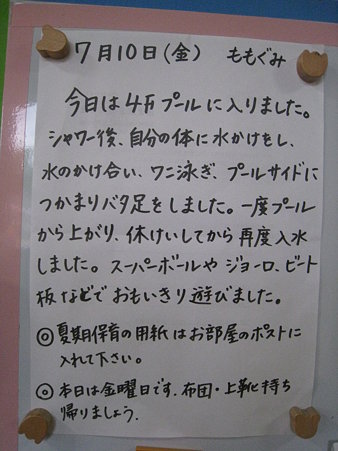 7月10日(金) ももぐみ
今日は4万プールに入りました。
シャワー後、自分の体に水かけをし、
水のかけ合い、ワニ泳ぎ、プールサイドに
つかまりバタ足をしました。一度プール
から上がり、休けいしてから再度入水
しました。スーパーボールやジョーロ、ビート
板などでおもいきり遊びました。
◎夏期保育の用紙はお部屋のポストに
入れて下さい。
◎本日は金曜日です。布団・上靴に持ち
帰りましょう。